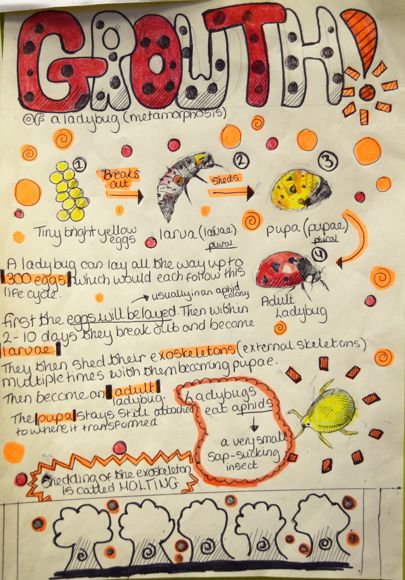 GROWTH!
OF a ladybug (metamorphosis)
① Breaks out ② Sheds ③
Tiny bright yellow eggs
larva (larvae) plural
pupa (pupae) plural
④
Adult Ladybug
A ladybug can lay all the way up to
300 eggs which would each follow this
life cycle.
usually in an aphid colony
first the eggs will be layed. Then within
2-10 days they break out and become
larvae.
They then shed their exoskeletons (external skeletons)
multiple times with them becoming pupae.
Then become an adult ladybug.
The pupa stays still attached
to where it transformed
Ladybugs
eat aphids
a very small
sap-sucking
insect
Shedding of the exoskeleton
is called MOLTING